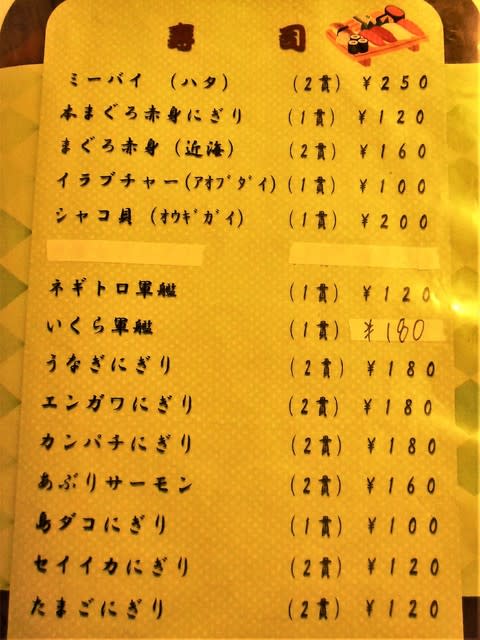 寿司
ミーバイ (ハタ) (2貫) ¥250
本まぐろ赤身にぎり (1貫) ¥120
まぐろ赤身 (近海) (2貫) ¥160
イラブチャー(アオブダイ) (1貫) ¥100
シャコ貝 (オウギガイ) (1貫) ¥200
ネギトロ軍艦 (1貫) ¥120
いくら軍艦 (1貫) ¥180
うなぎにぎり (2貫) ¥180
エンガワにぎり (2貫) ¥180
カンパチにぎり (2貫) ¥180
あぶりサーモン (2貫) ¥160
島ダコにぎり (1貫) ¥100
セイイカにぎり (2貫) ¥120
たまごにぎり (2貫) ¥120